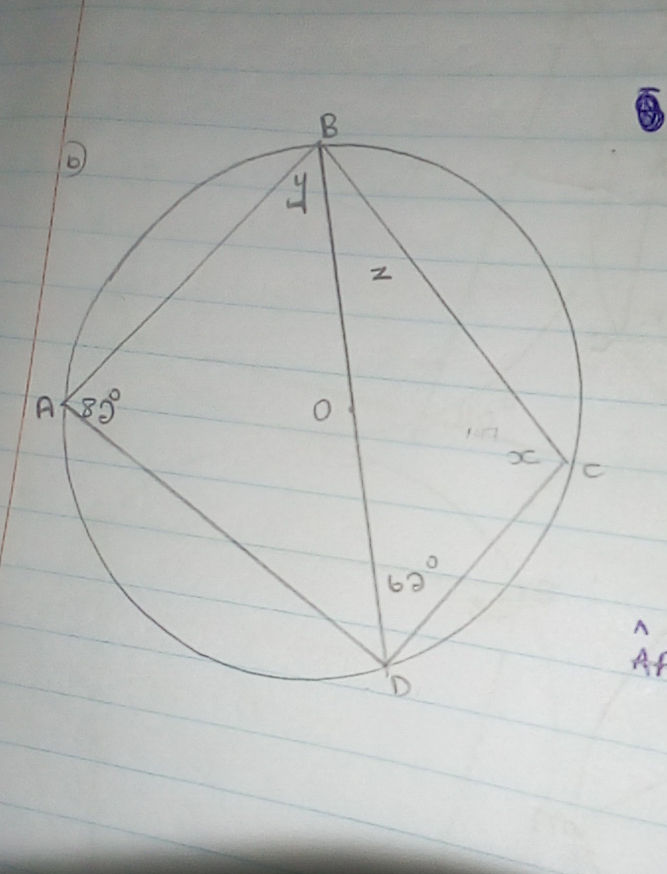 B
b)
y
z
A 82°
O
x C
62°
D